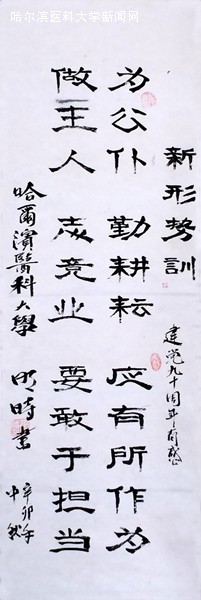 哈尔滨医科大学新闻网
新形势訓
建党九十周年有感
为公仆 勤耕耘 应有所作为
做主人 志竞业 要敢于担当
哈爾濱醫科大學 明時書
辛卯年
中秋